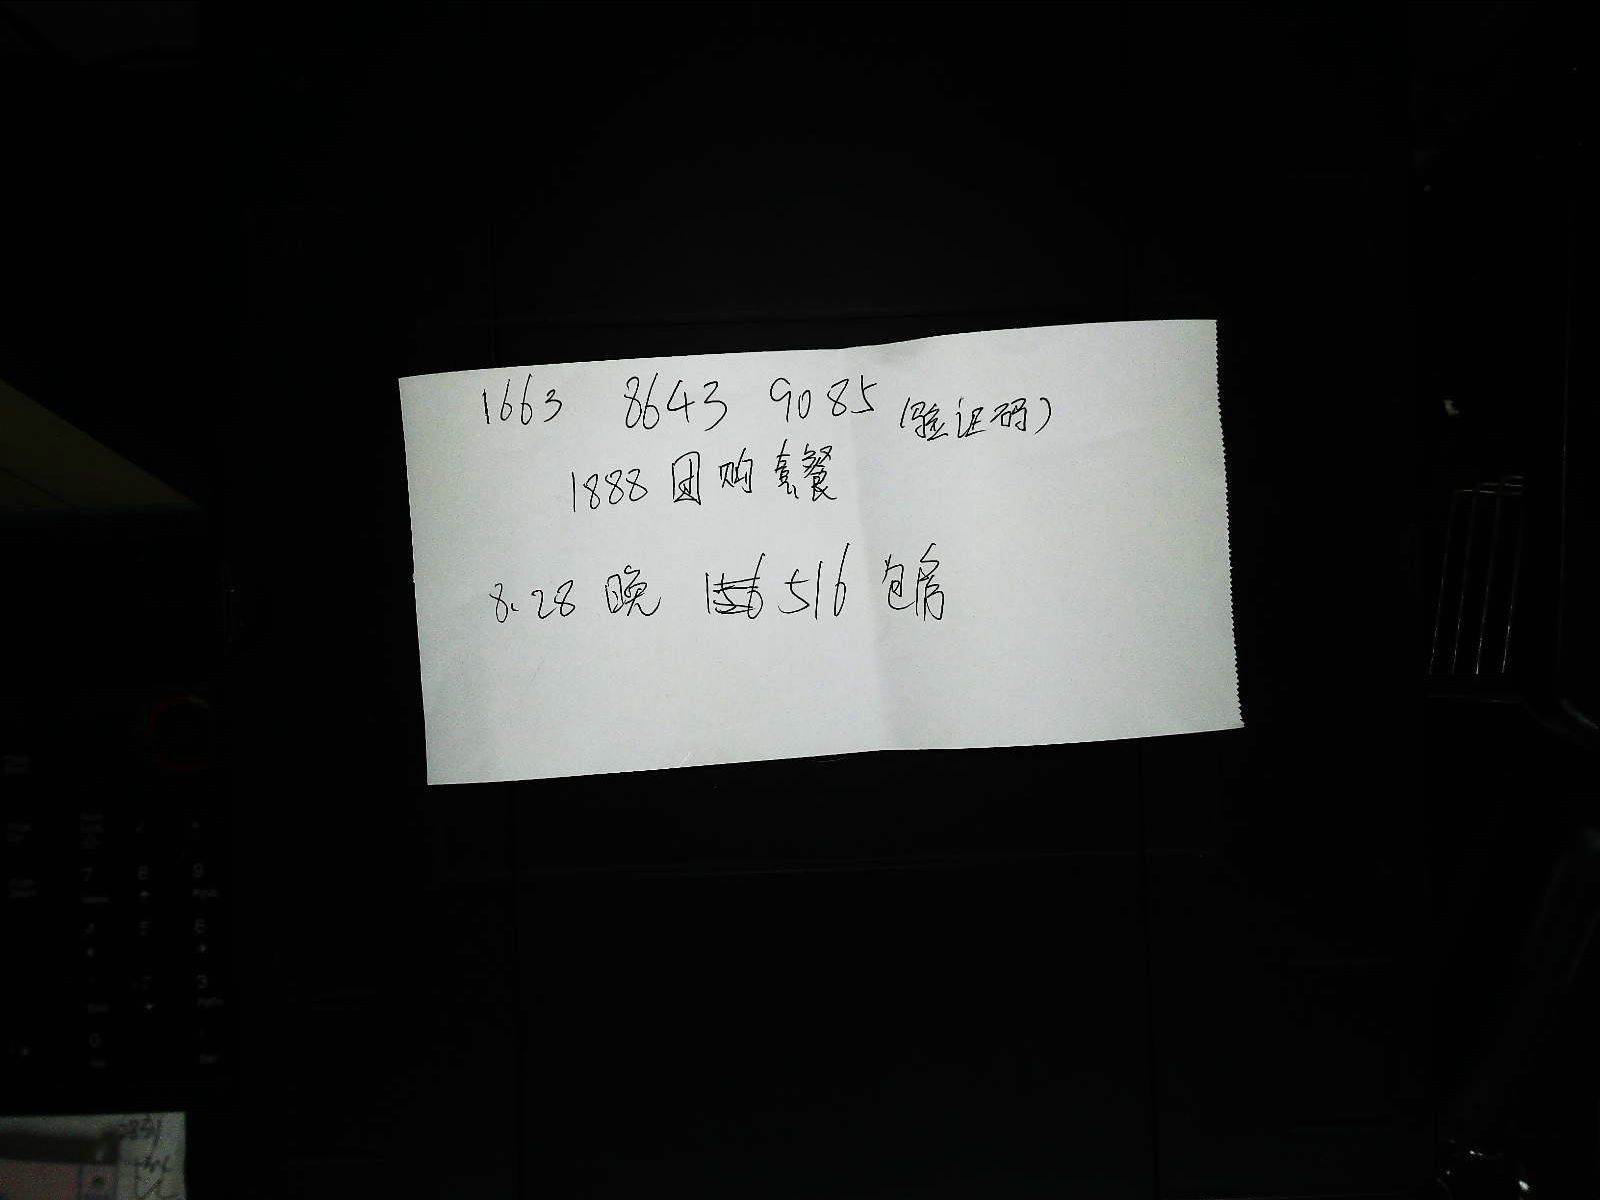 1663 8643 9085 (验证码)
1888 团购套餐
8.28 晚 516 包房